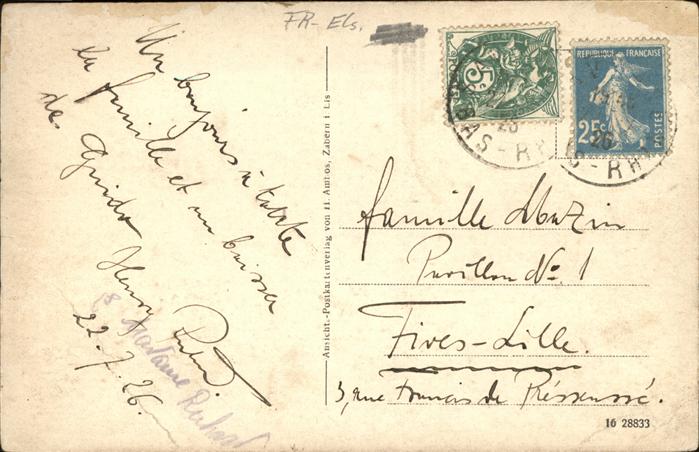 FR-Els.
Un bonjour à toute
la famille et un baiser
de Guido
Henry
22.7.26.
Madame Richard
Ansicht.-Postkartenverlag von H. Amtos, Zabern i Els
5c
POSTES
REPUBLIQUE FRANÇAISE
25c
POSTES
BAS-RH
26
S-RH
26
famille Mazin
Pavillon No. 1
Fives-Lille.
3, rue Francis de Préssensé.
16 28833